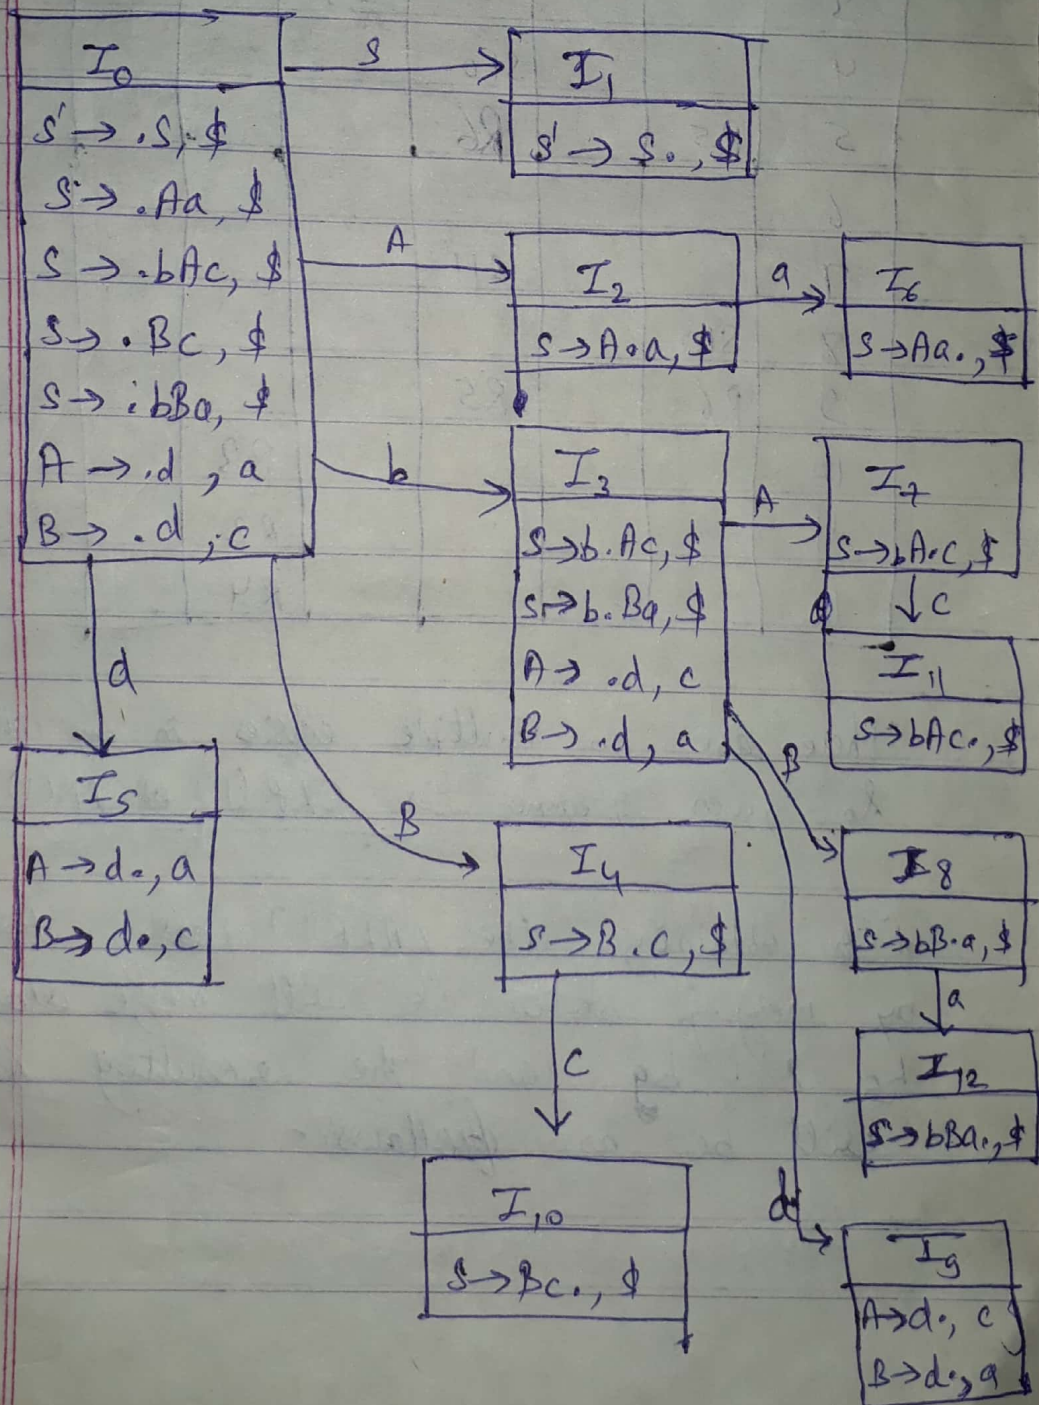 I₀
S' → .S, $
S → .Aa, $
S → .bAc, $
S → .Bc, $
S → .bBa, $
A → .d , a
B → .d , c
S
I₁
S' → S. , $
A
I₂
S → A.a, $
a
I₆
S → Aa. , $
b
I₃
S → b.Ac, $
S → b.Ba, $
A → .d, c
B → .d, a
A
I₇
S → bA.c, $
c
I₁₁
S → bAc., $
d
I₅
A → d., a
B → d., c
B
I₄
S → B.c, $
B
I₈
S → bB.a, $
a
I₁₂
S → bBa., $
c
I₁₀
S → Bc., $
d
I₉
A → d., c
B → d., a